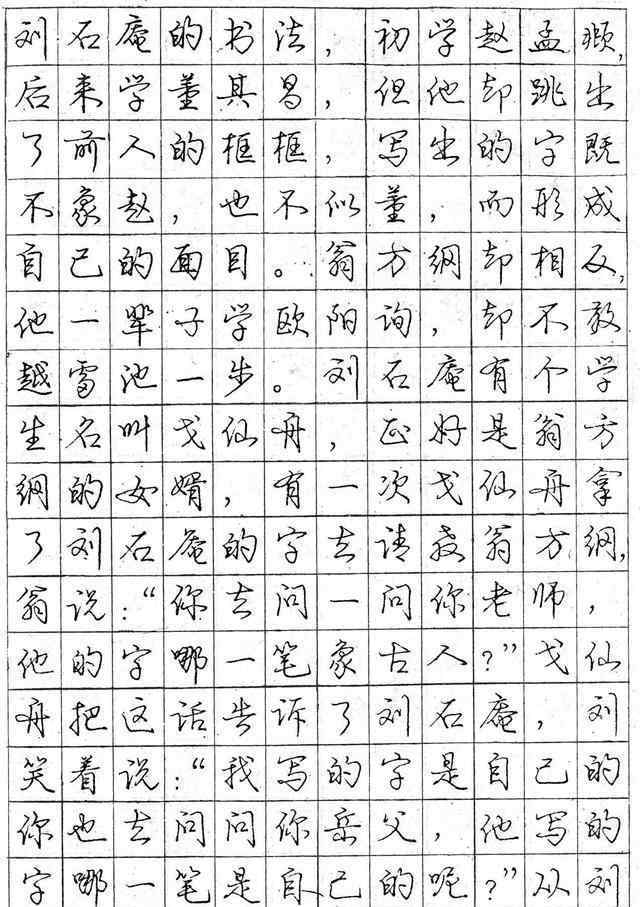 刘石庵的书法，初学赵孟頫，
后来学董其昌，但他却跳出
了前人的框框，写出的字既
不象赵，也不似董，而形成
自己的面目。翁方纲却相反，
他一辈子学欧阳询，却不敢
越雷池一步。刘石庵有个学
生名叫戈仙舟，正好是翁方
纲的女婿，有一次戈仙舟拿
了刘石庵的字去请教翁方纲，
翁说：“你去问一问你老师，
他的字哪一笔象古人？”戈仙
舟把这话告诉了刘石庵，刘
笑着说：“我写的字是自己的
你也去问问你岳父，他写的
字哪一笔是自己的呢？”从刘